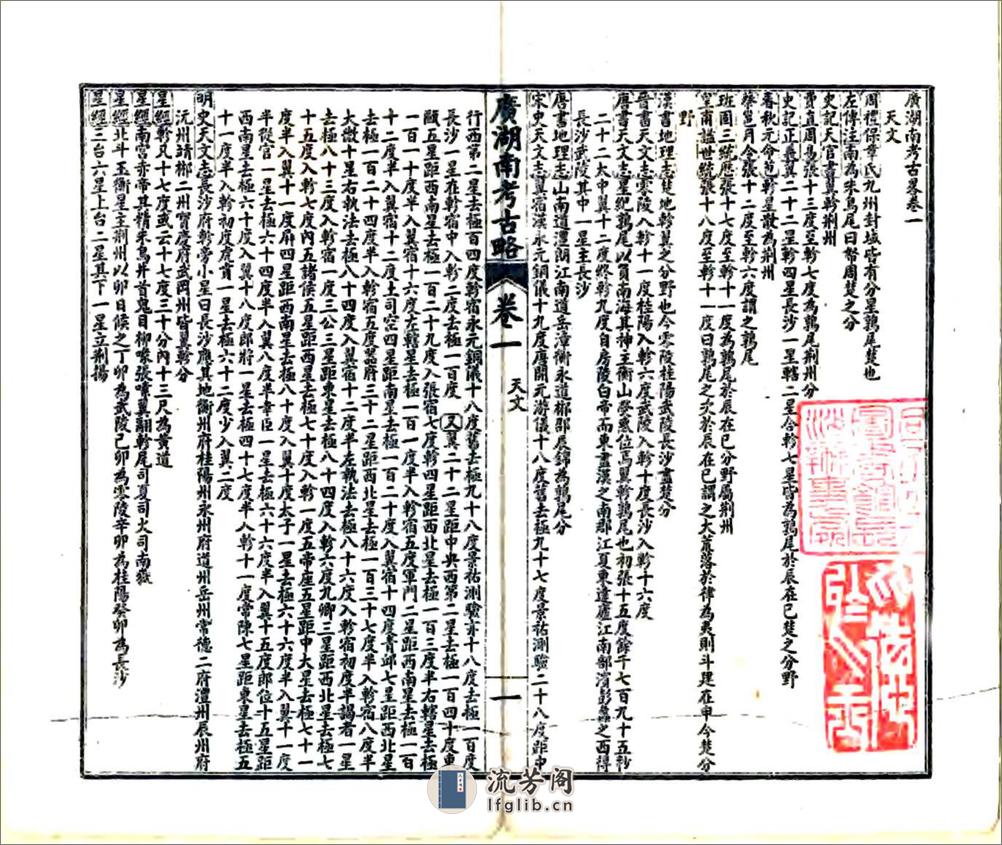 廣湖南考古畧卷一
天文
周禮保章氏九州封域皆有分星鶉尾楚也
左傳注南為朱鳥鳥尾曰帑周楚之分
史記天官書翼軫荆州
費直周易張十三度至軫七度為鶉尾荆州分
史記正義翼二十二星軫四星長沙一星轄二星合軫七星皆為鶉尾於辰在巳楚之分野
春秋元命包軫星散為荆州
蔡邕月令張十二度至軫六度謂之鶉尾
班固三統歷張十七度至軫十一度為鶉尾於辰在巳分野屬荆州
皇甫謐世紀張十八度至軫十一度曰鶉尾之次於辰在巳謂之大荒落於律為夷則斗建在申今楚分
野
漢書地理志楚地軫翼之分野也今零陵桂陽武陵長沙盡楚分
晉書天文志零陵入軫十一度桂陽入軫六度武陵入軫十度長沙入軫十六度
唐書天文志星紀鶉尾以負南海其神主衡山熒惑位焉翼軫鶉尾也初張十五度餘千七百九十五秒
二十二太中翼十二度終軫九度自房陵白帝而東盡漢之南郡江夏東達廬江南部濱彭蠡之西得
長沙武陵其中一星主長沙
唐書地理志山南道澧朗江南道岳潭衡永道郴邵辰錦為鶉尾分
宋史天文志翼宿漢永元銅儀十九度唐開元游儀十八度舊去極九十七度景祐測驗二十八度距中
行西第二星去極百四度軫宿永元銅儀十八度舊去極九十八度景祐測驗亦十八度去極一百度
長沙一星在軫宿中入軫二度去極一百度 又翼二十二星距中央西第二星去極一百四十度東
甌五星距西南星去極一百二十九度入張宿七度軫四星距西北星去極一百三度半右轄星去極
一百一十度半入翼宿十六度左轄星去極一百一度半入軫宿五度軍門二星距西南星去極一百
十二度半入翼宿十二度土司空四星距南星去極一百二十度入翼宿十四度青邱七星距西北星
去極一百二十四度半入軫宿五度器府三十二星距西北星去極一百三十七度半入軫宿八度半
太微十星右執法去極八十四度入翼宿十二度半左執法去極八十六度入軫宿初度半謁者一星
去極八十三度入軫宿一度三公三星距東星去極八十四度入軫六度九卿三星距西北星去極七
十五度入軫七度內五諸侯五星距西星去極七十度入軫一度五帝座五星距中大星去極七十一
度半入翼十一度屏四星距西南星去極八十度入翼十度太子一星去極六十六度半入翼十一度
半從官一星去極六十四度半入翼八度半幸臣一星去極六十六度半入翼十五度郎位十五星距
西南星去極五十八度入翼十八度郎將一星去極四十七度半入軫十一度常陳七星距東星去極五
十一度半入軫初度虎賁一星去極六十二度少入翼二度
明史天文志長沙府軫旁小星曰長沙應其地衡州府桂陽州永州府道州岳州常德二府澧州辰州府
沅州靖郴二州寶慶府武岡州皆翼軫分
星經軫凡十七度或云十七度三十分內十三尺為黃道
星經南宮赤帝其精朱鳥井首鬼目柳喙張嗉翼翮軫尾司夏司火司南嶽
星經北斗玉衡星主荆州以卯日候之丁卯為武陵己卯為零陵辛卯為桂陽癸卯為長沙
星經三台六星上台二星其下一星立荆揚
廣湖南考古略 卷一 天文 一
流芳阁
lfglib.cn